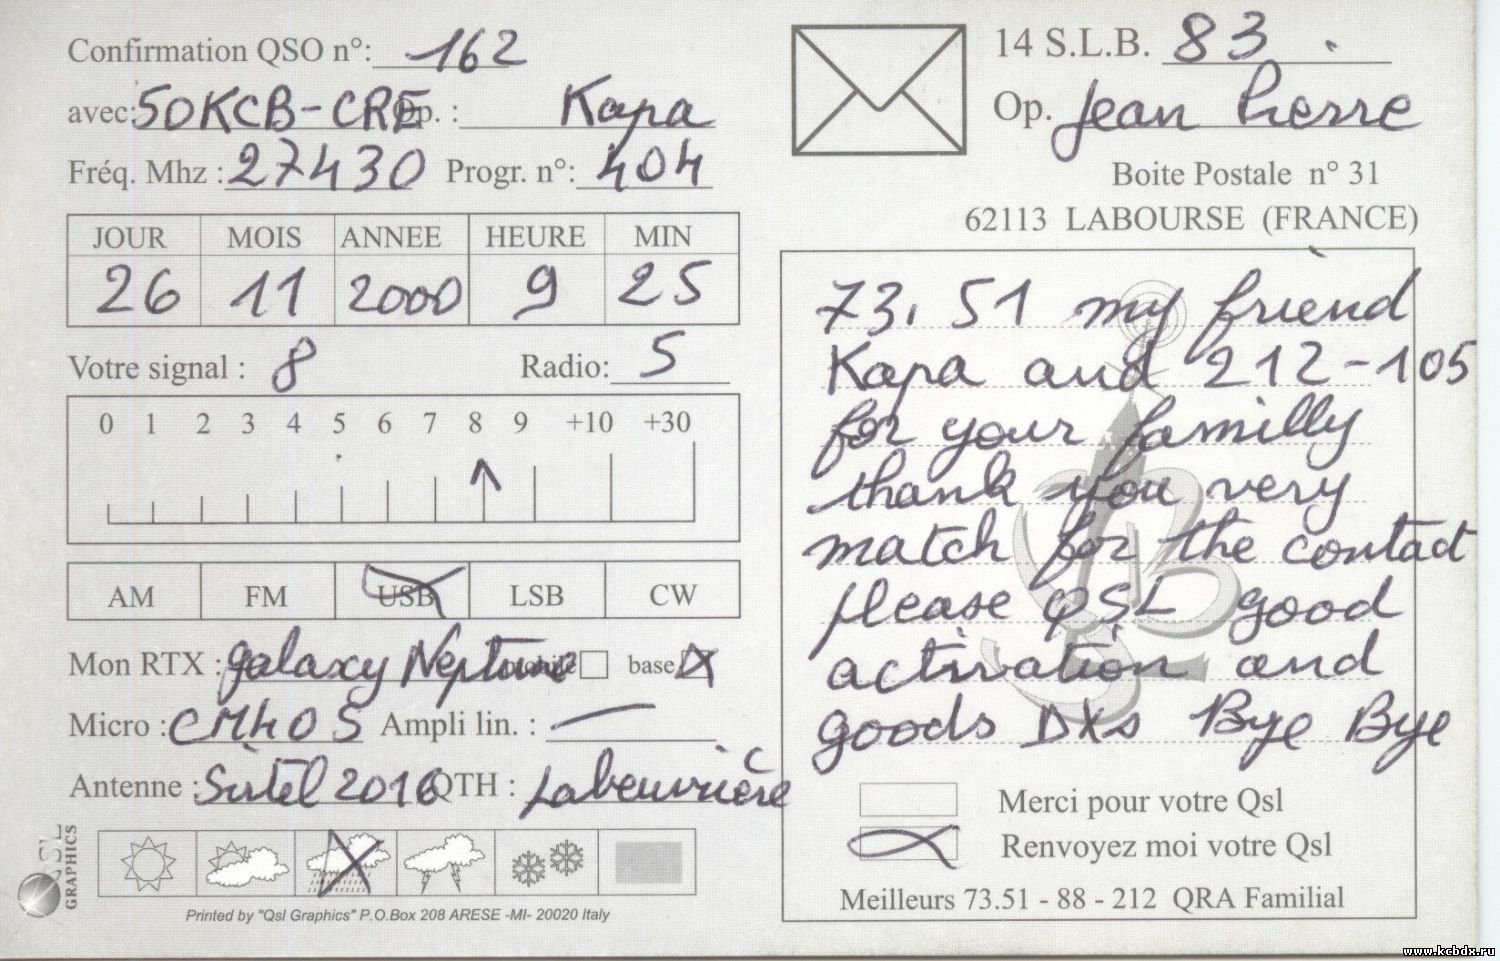 Confirmation QSO n°: 162
avec: 50KCB-CRE Op. : Kapa
Fréq. Mhz : 27430 Progr. n°: 404
JOUR MOIS ANNEE HEURE MIN
26 11 2000 9 25
Votre signal : 8 Radio: 5
0 1 2 3 4 5 6 7 8 9 +10 +30
AM FM USB LSB CW
Mon RTX : galaxy Neptune mobile base
Micro : CM40S Ampli lin. : —
Antenne : Sirtel 2016 QTH : Labeuvrière
QSL GRAPHICS
Printed by "Qsl Graphics" P.O.Box 208 ARESE -MI- 20020 Italy
14 S.L.B. 83.
Op. Jean Pierre
Boite Postale n° 31
62113 LABOURSE (FRANCE)
73. 51 my friend
Kapa and 212-105
for your familly
thank you very
match for the contact
please QSL good
activation and
goods DXs Bye Bye
Merci pour votre Qsl
Renvoyez moi votre Qsl
Meilleurs 73.51 - 88 - 212 QRA Familial
www.kcbdx.ru